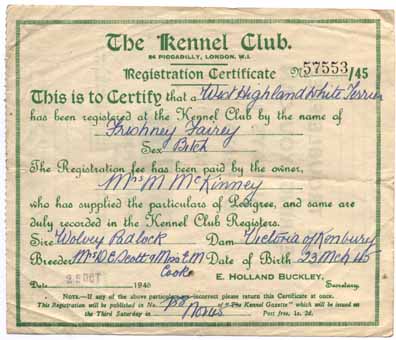 The Kennel Club.
84 PICCADILLY, LONDON, W.1.
Registration Certificate No 57553/45
This is to Certify that a West Highland White Terrier
has been registered at the Kennel Club by the name of
Frishney Fairey
Sex Bitch
The Registration fee has been paid by the owner,
Mrs M McKinney
who has supplied the particulars of Pedigree, and same are
duly recorded in the Kennel Club Registers.
Sire Wolvey Padlock Dam Victoria of Konbury
Breeder Mrs D.C. Scott & Miss E M Date of Birth 23 Mch 45
Cooke
E. HOLLAND BUCKLEY,
Date 25 OCT 1945 Secretary.
NOTE.—If any of the above particulars are incorrect please return this Certificate at once.
This Registration will be published in No. of "The Kennel Gazette" which will be issued on
the Third Saturday in Novr Post free, 1s. 2d.